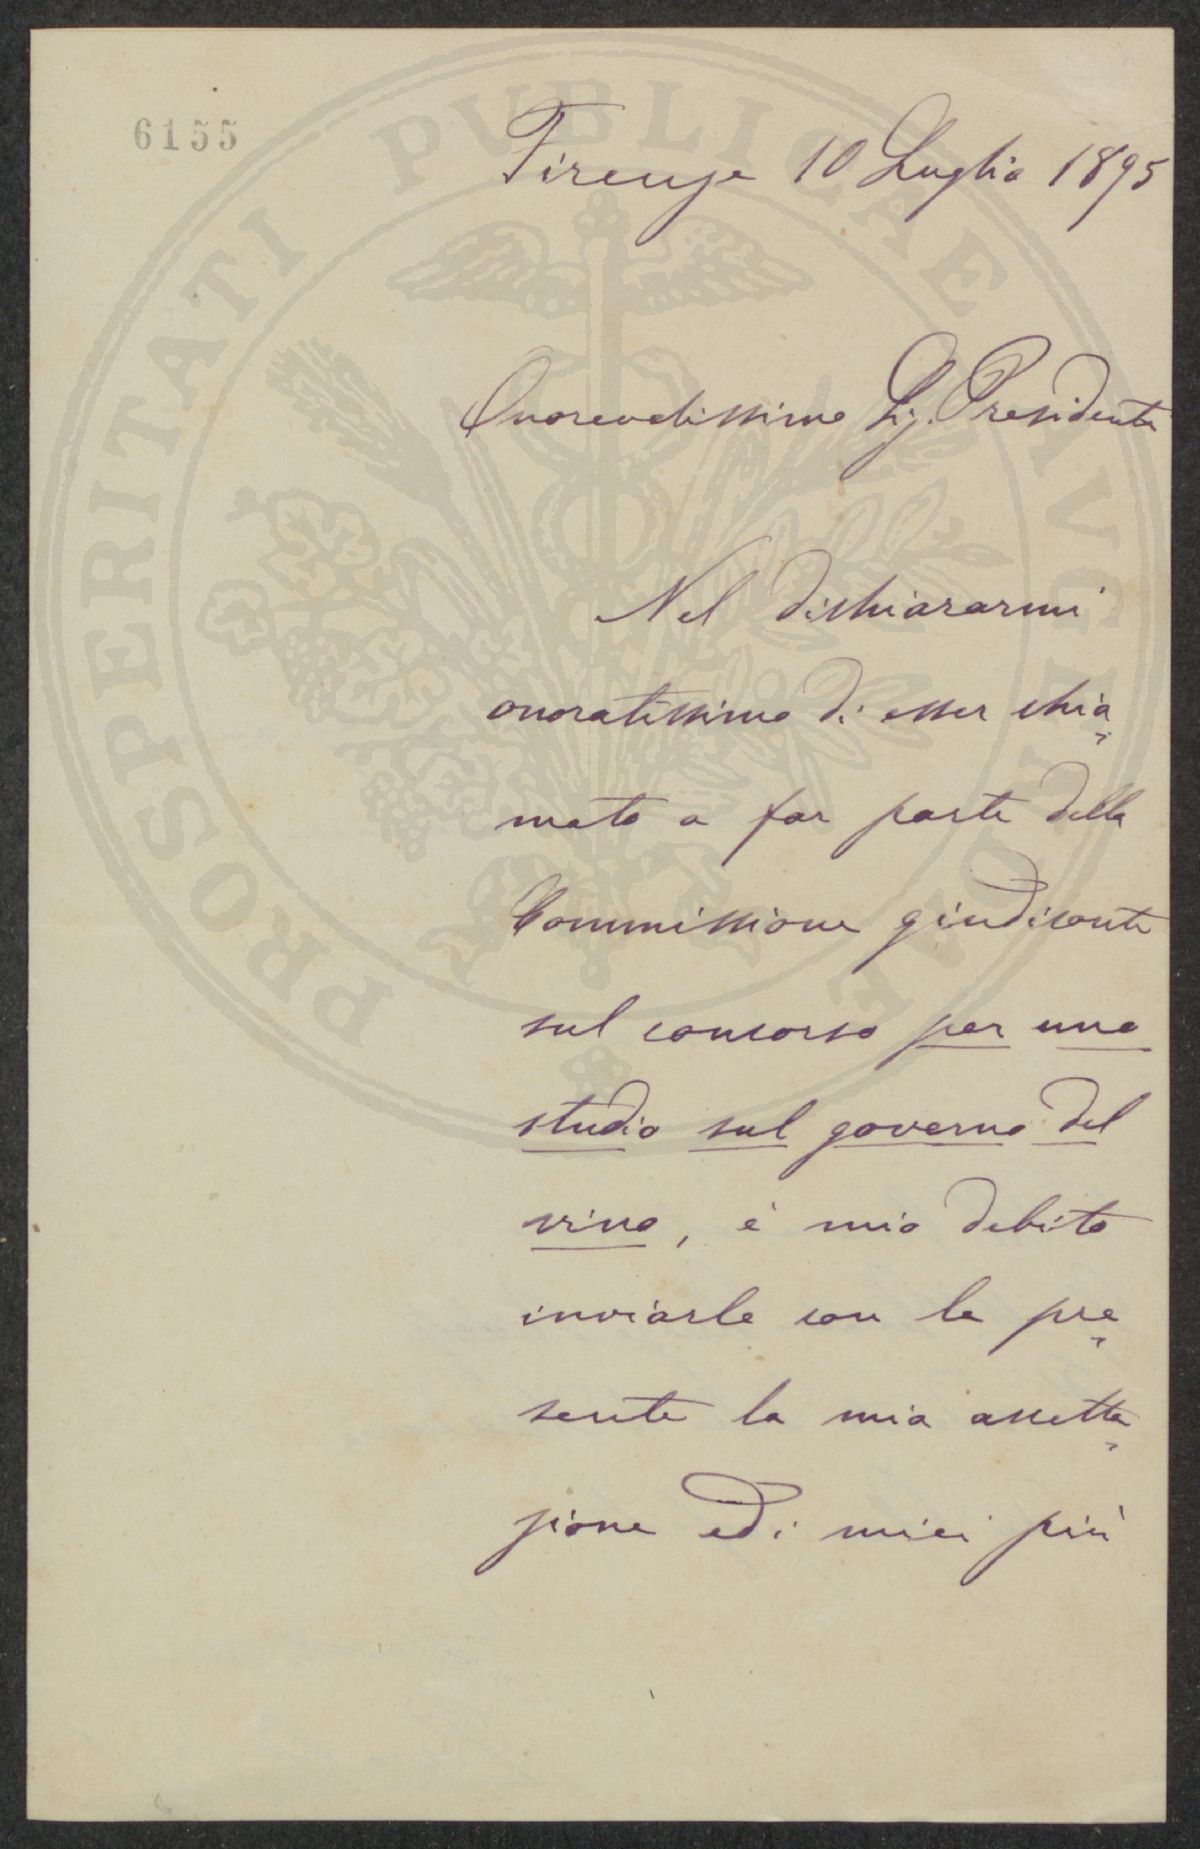 6155
Firenze 10 Luglio 1895
Onorevolissimo Sig. Presidente
Nel dichiararmi
onoratissimo di esser chia-
mato a far parte della
Commissione giudicante
sul concorso per uno
studio sul governo del
vino, è mio debito
inviarle con la pre-
sente la mia accetta-
zione ed i miei più
PROSPERITATI PUBLICAE AVGENDAE